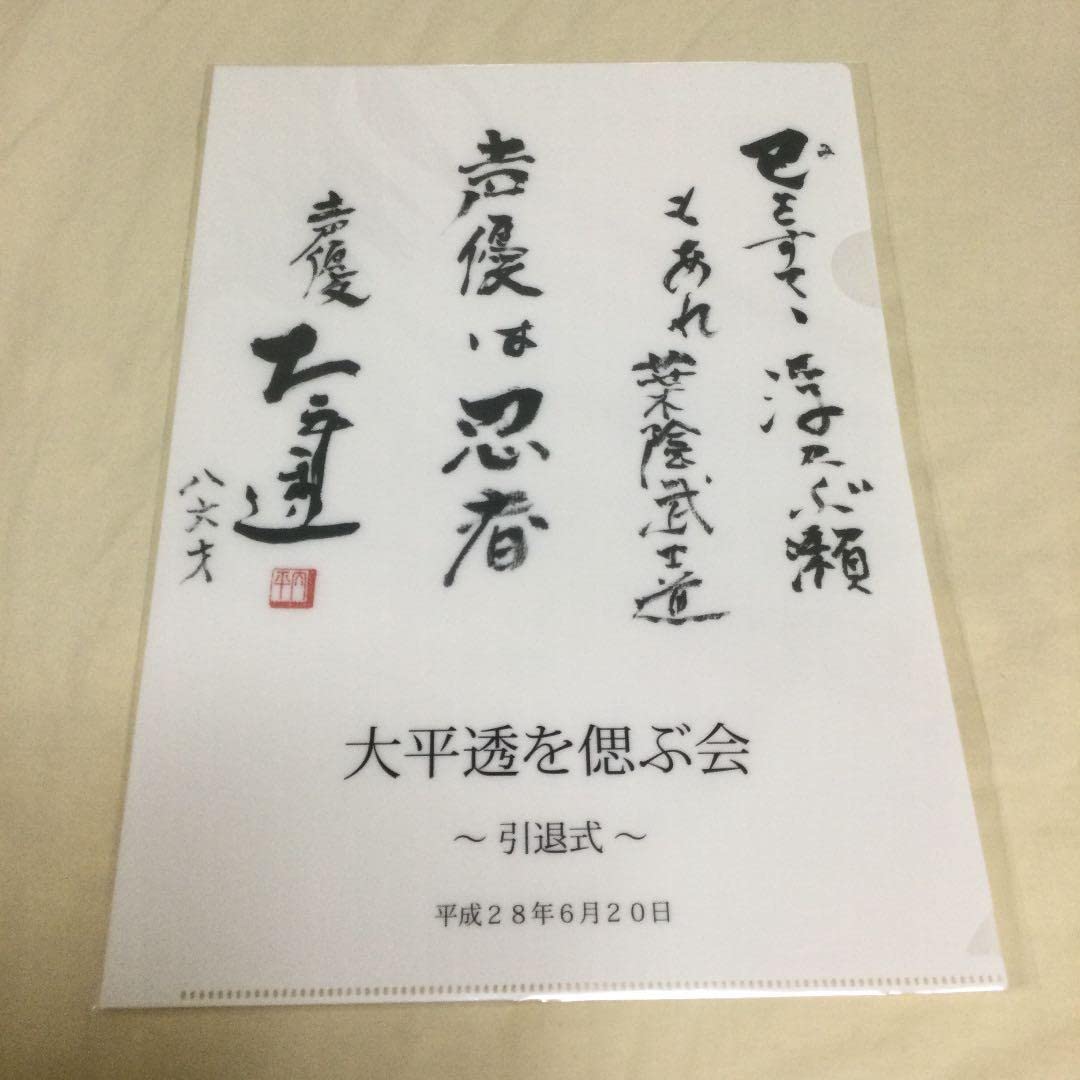 己をすてゝ浮かぶ瀬
もあれ葉隠武士道
声優は忍者
声優 大平透
八六才
大平
大平透を偲ぶ会
～ 引退式 ～
平成２８年６月２０日